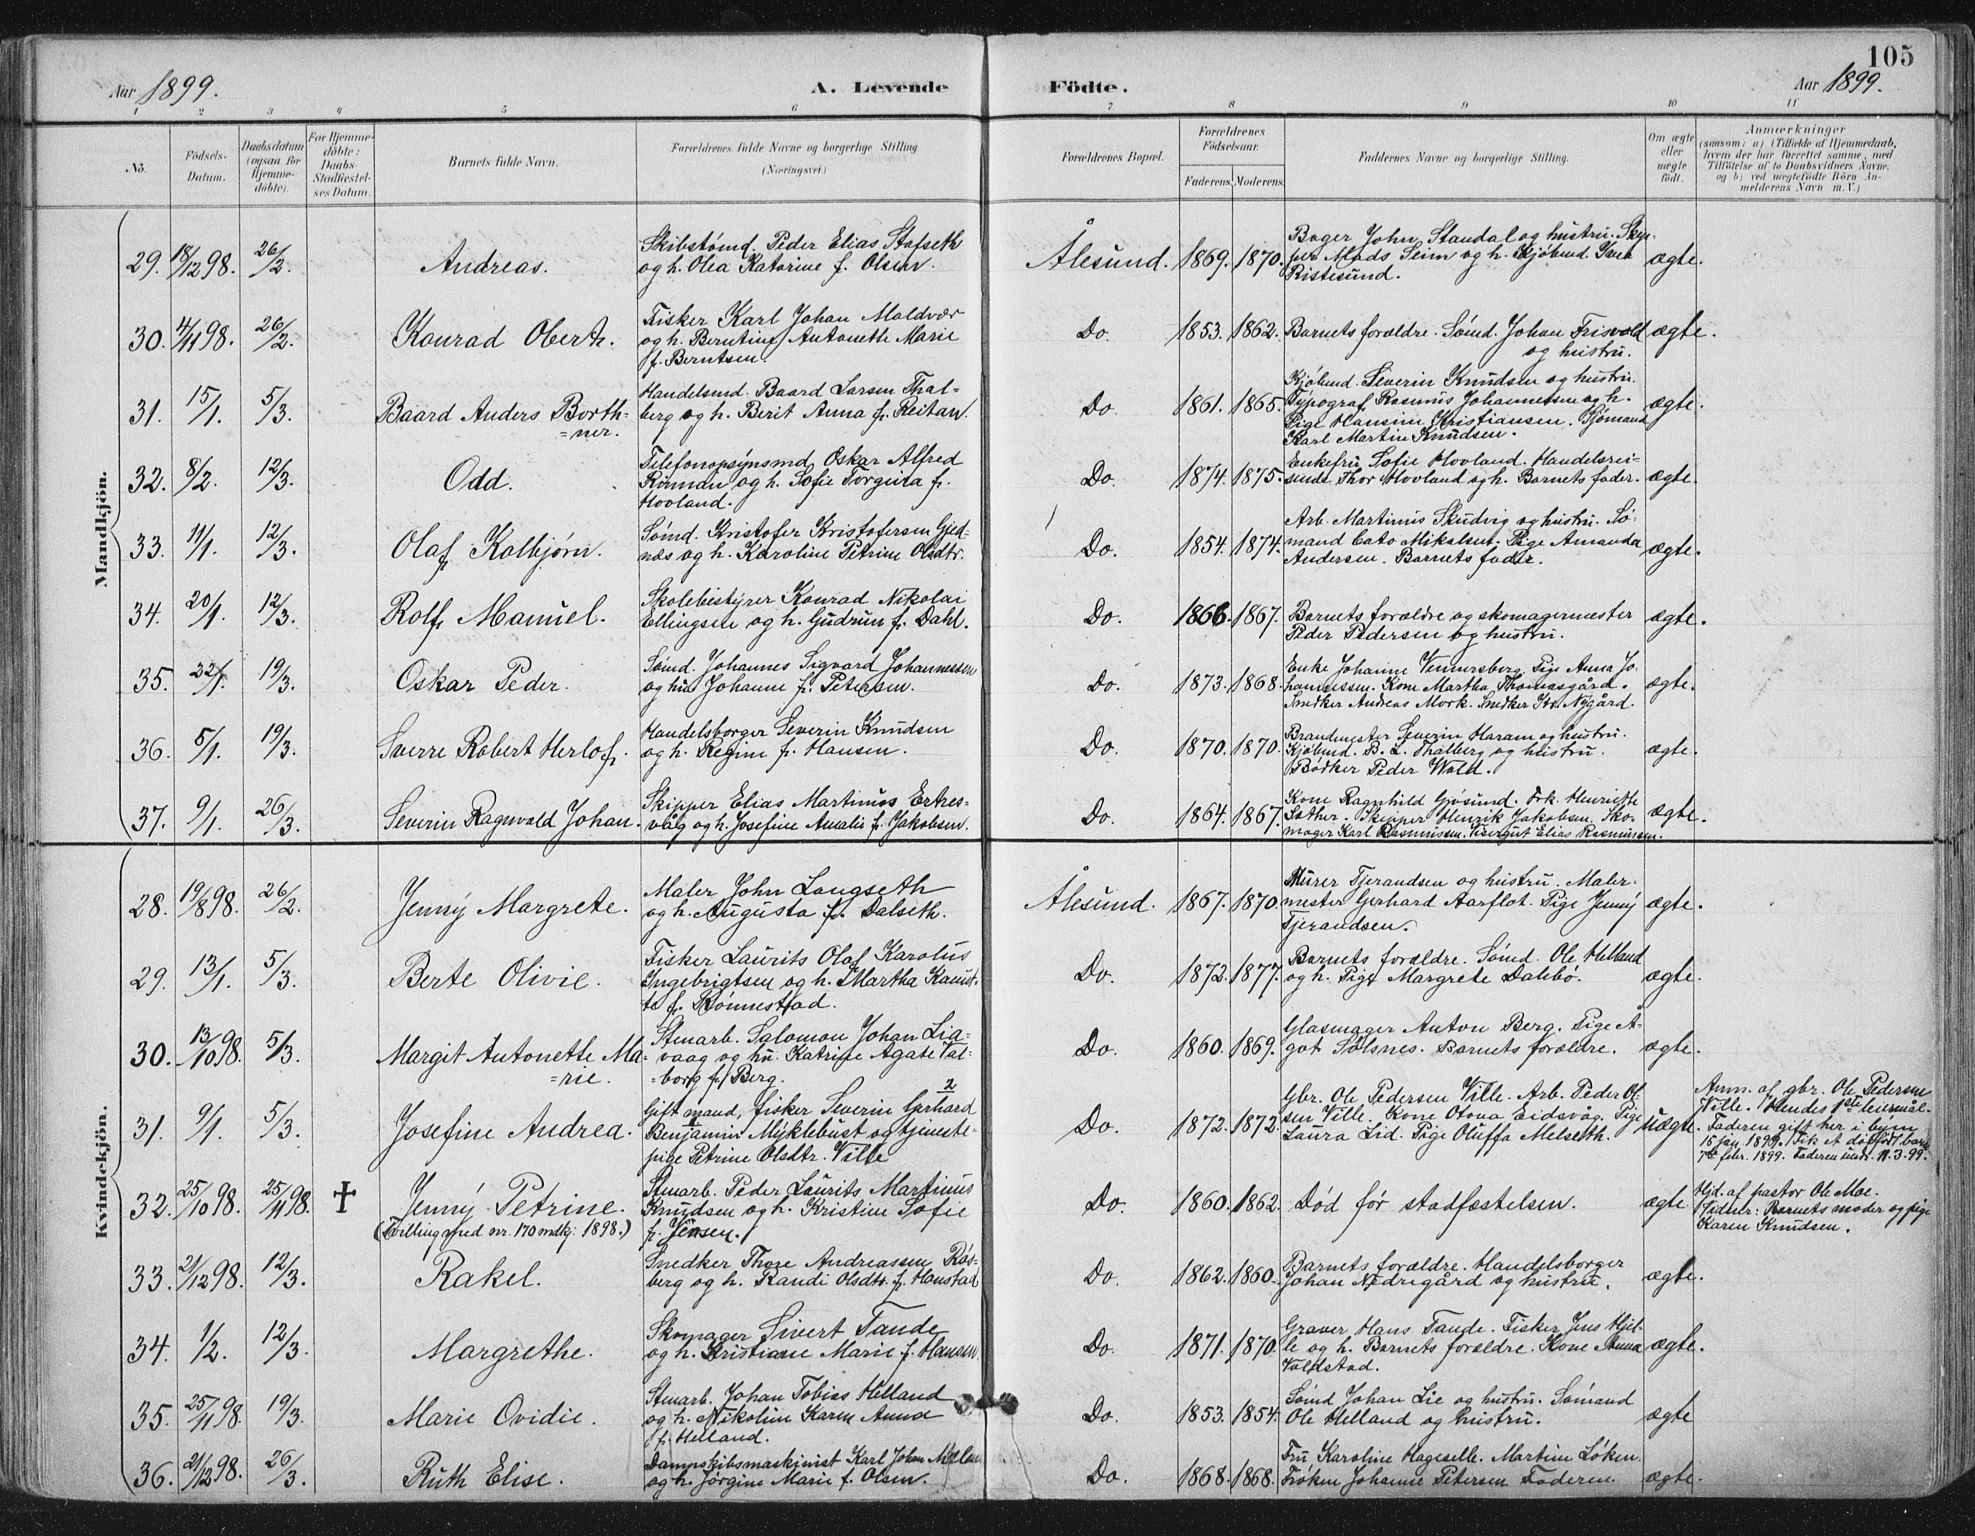 105
Aar 1899.
A. Levende
Födte.
Aar 1899.
1 2 3 4 5 6 7 8 9 10 11
No.
Födsels-
Datum.
Daabsdatum
(ogsaa for
Hjemme-
döbte).
For Hjemme-
döbte:
Daabs-
Stadfæstel-
ses Datum.
Barnets fulde Navn.
Forældrenes fulde Navne og borgerlige Stilling
(Næringsvei.)
Forældrenes Bopæl.
Forældrenes
Födselsaar.
Faderens. Moderens.
Faddernes Navne og borgerlige Stilling.
Om ægte
eller
uægte
födt.
Anmærkninger
(saasom: a) i Tilfælde af Hjemmedaab,
hvem der har forrettet samme, med
Tilföielse af to Daabsvidners Navne,
og b) ved uægtefödte Börn An-
melderens Navn m. V.)
Mandkjön.
29. 18/12 98. 26/2. Andreas.
Skibstømd. Peder Elias Stafseth
og h. Olea Katarine f. Olsen.
Ålesund. 1869. 1870.
Bager John Standal og hustru. Skip-
per Mads Seim og h. Kjøbmd.
Ristesund.
ægte.
30. 4/11 98. 26/2. Konrad Obert.
Fisker Karl Johan Maldvær
og h. Berntine Antonette Marie
f. Berntsen.
Do. 1853. 1862.
Barnets forældre. Sømd. Johan Frisvold
og hustru.
ægte.
31. 15/1. 5/3. Baard Anders Borth-
=ner.
Handelsmd. Baard Larsen Thal-
berg og h. Berit Anna f. Reitan.
Do. 1861. 1865.
Kjøbmd. Severin Knudsen og hustru.
Typograf Rasmus Johannesen og h.
Pige Hansine Kristiansen. Sjømand
Karl Martin Knudsen.
ægte.
32. 8/2. 12/3. Odd.
Telefonopsynsmd Oskar Alfred
og h. Sofie f.
Hovland.
Do. 1874. 1875.
Enkefru Sofie Hovland. Handelsrei-
sende Thor Hovland og h. Barnets fader.
ægte.
33. 11/1. 12/3. Olaf Kolbjørn.
Sømd. Kristofer Kristofersen Gjed-
næs og h. Karoline Petrine Olsdtr.
Do. 1854. 1874.
Arb. Martinus Skudvig og hustru. Sø-
mand Cato Mikalsen. Pige Amanda
Andersen. Barnets fader.
ægte.
34. 20/1. 12/3. Rolf Manuel.
Skolebestyrer Konrad Nikolai
Ellingsen og h. Gudrun f. Dahl.
Do. 1866. 1867.
Barnets forældre og skomagermester
Peder Pedersen og hustru.
ægte.
35. 22/1. 19/3. Oskar Peder.
Sømd. Johannes Sigvard Johannessen
og hu Johanne f. Petersen.
Do. 1873. 1868.
Enke Johanne Vennersberg. Pige Anna Jo-
hannessen. Kone Martha Thomasgård.
Snedker Andreas Mork. Snedker Nygård.
ægte.
36. 5/1. 19/3. Sverre Robert Herlof.
Handelsborger Severin Knudsen
og h. Regine f. Hansen.
Do. 1870. 1870.
Brandmester Severin Haram og hustru.
Kjøbmd. B. L. Thalberg og hustru.
Bødker Peder Wold.
ægte.
37. 9/1. 26/3. Severin Ragnvald Johan.
Skipper Elias Martinus Ertres-
våg og h. Josefine Amalie f. Jakobsen.
Do. 1864. 1867.
Kone Ragnhild Gjøsund. Frk. Henriette
Sather. Skipper Henrik Jakobsen. Sko-
mager Karl Rasmussen. Visergut Elias Rasmussen.
ægte.
Kvindekjön.
28. 19/8 98. 26/2. Jenny Margrete.
Maler John Langseth
og h. Augusta f. Dalseth.
Ålesund. 1867. 1870.
Murer Tjerandsen og hustru. Maler-
mester Gerhard Aarflot. Pige Jenny
Tjerandsen.
ægte.
29. 13/1. 5/3. Berte Olivie.
Fisker Laurits Olaf Karolus
Ingebrigtsen og h. Martha
f. Rønnestad.
Do. 1872. 1877.
Barnets forældre. Sømd. Ole Helland
og h. Pige Margrete Dalebø.
ægte.
30. 13/10 98. 5/3. Margit Antonette Ma-
=rie.
Stuarb. Salomon Johan Lia-
vaag og hu. Katrine Agate Val-
=borg f. Berg.
Do. 1860. 1869.
Glasmager Anton Berg. Pige A-
got Solsnes. Barnets forældre.
ægte.
31. 9/1. 5/3. Josefine Andrea.
Gift mand, fisker Severin Gerhard
Benjamin Myklebust og tjeneste-
pige Petrine Olsdtr. Ville
2
Do. 1872. 1872.
Gbr. Ole Pedersen Ville. Arb. Peder Ol-
sen Ville. Kone Otova Eidsvåg. Pige
Laura Lid. Pige Oluffa Melseth.
uægte.
Anm. af gbr. Ole Pedersen
Ville. Hendes 1ste leiermål.
Faderen gift her i byen
15 jan. 1899. Fik et dødfødt barn
7de febr. 1899. Faderen undr. 11.3.99.
32. 25/10 98. 25/11 98. ✝ Jenny Petrine.
(Tvilling med nr. 170 mdkj. 1898.)
Stuarb. Peder Laurits Martinus
Knudsen og h. Kristine Sofie
f. Jensen.
Do. 1860. 1862.
Død før stadfæstelsen.
ægte
Hjd. af pastor Ole Moe.
Vidner: Barnets moder og pige
Karen Knudsen.
33. 21/12 98. 12/3. Rakel.
Snedker Thore Andreassen Røs-
berg og h. Randi Olsdtr. f. Hanstad
Do. 1862. 1860.
Barnets forældre. Handelsborger
Johan Nedregård og hustru.
ægte.
34. 1/2. 12/3. Margrethe.
Skomager Sivert Tande
og h. Kristiane Marie f. Hansen.
Do. 1871. 1870.
Graver Hans Tande. Fisker Jens Hjel-
le og h. Barnets forældre. Kone Anna
Valdstad.
ægte.
35. 25/11 98. 19/3. Marie Ovidie.
Stuarb. Johan Tobias Helland
og h. Nikoline Karen Anna
f. Helland.
Do. 1853. 1854.
Sømd Johan Lie og hustru. Sømand
Ole Helland og hustru.
ægte
36. 21/12 98. 26/3. Ruth Elise.
Dampskibsmaskinist Karl Johan
og h. Jørgine Marie f. Olsen.
Do. 1868. 1868.
Fru Karoline Hageselle. Martine Løken.
Frøken Johanne Petersen Faderen.
ægte.